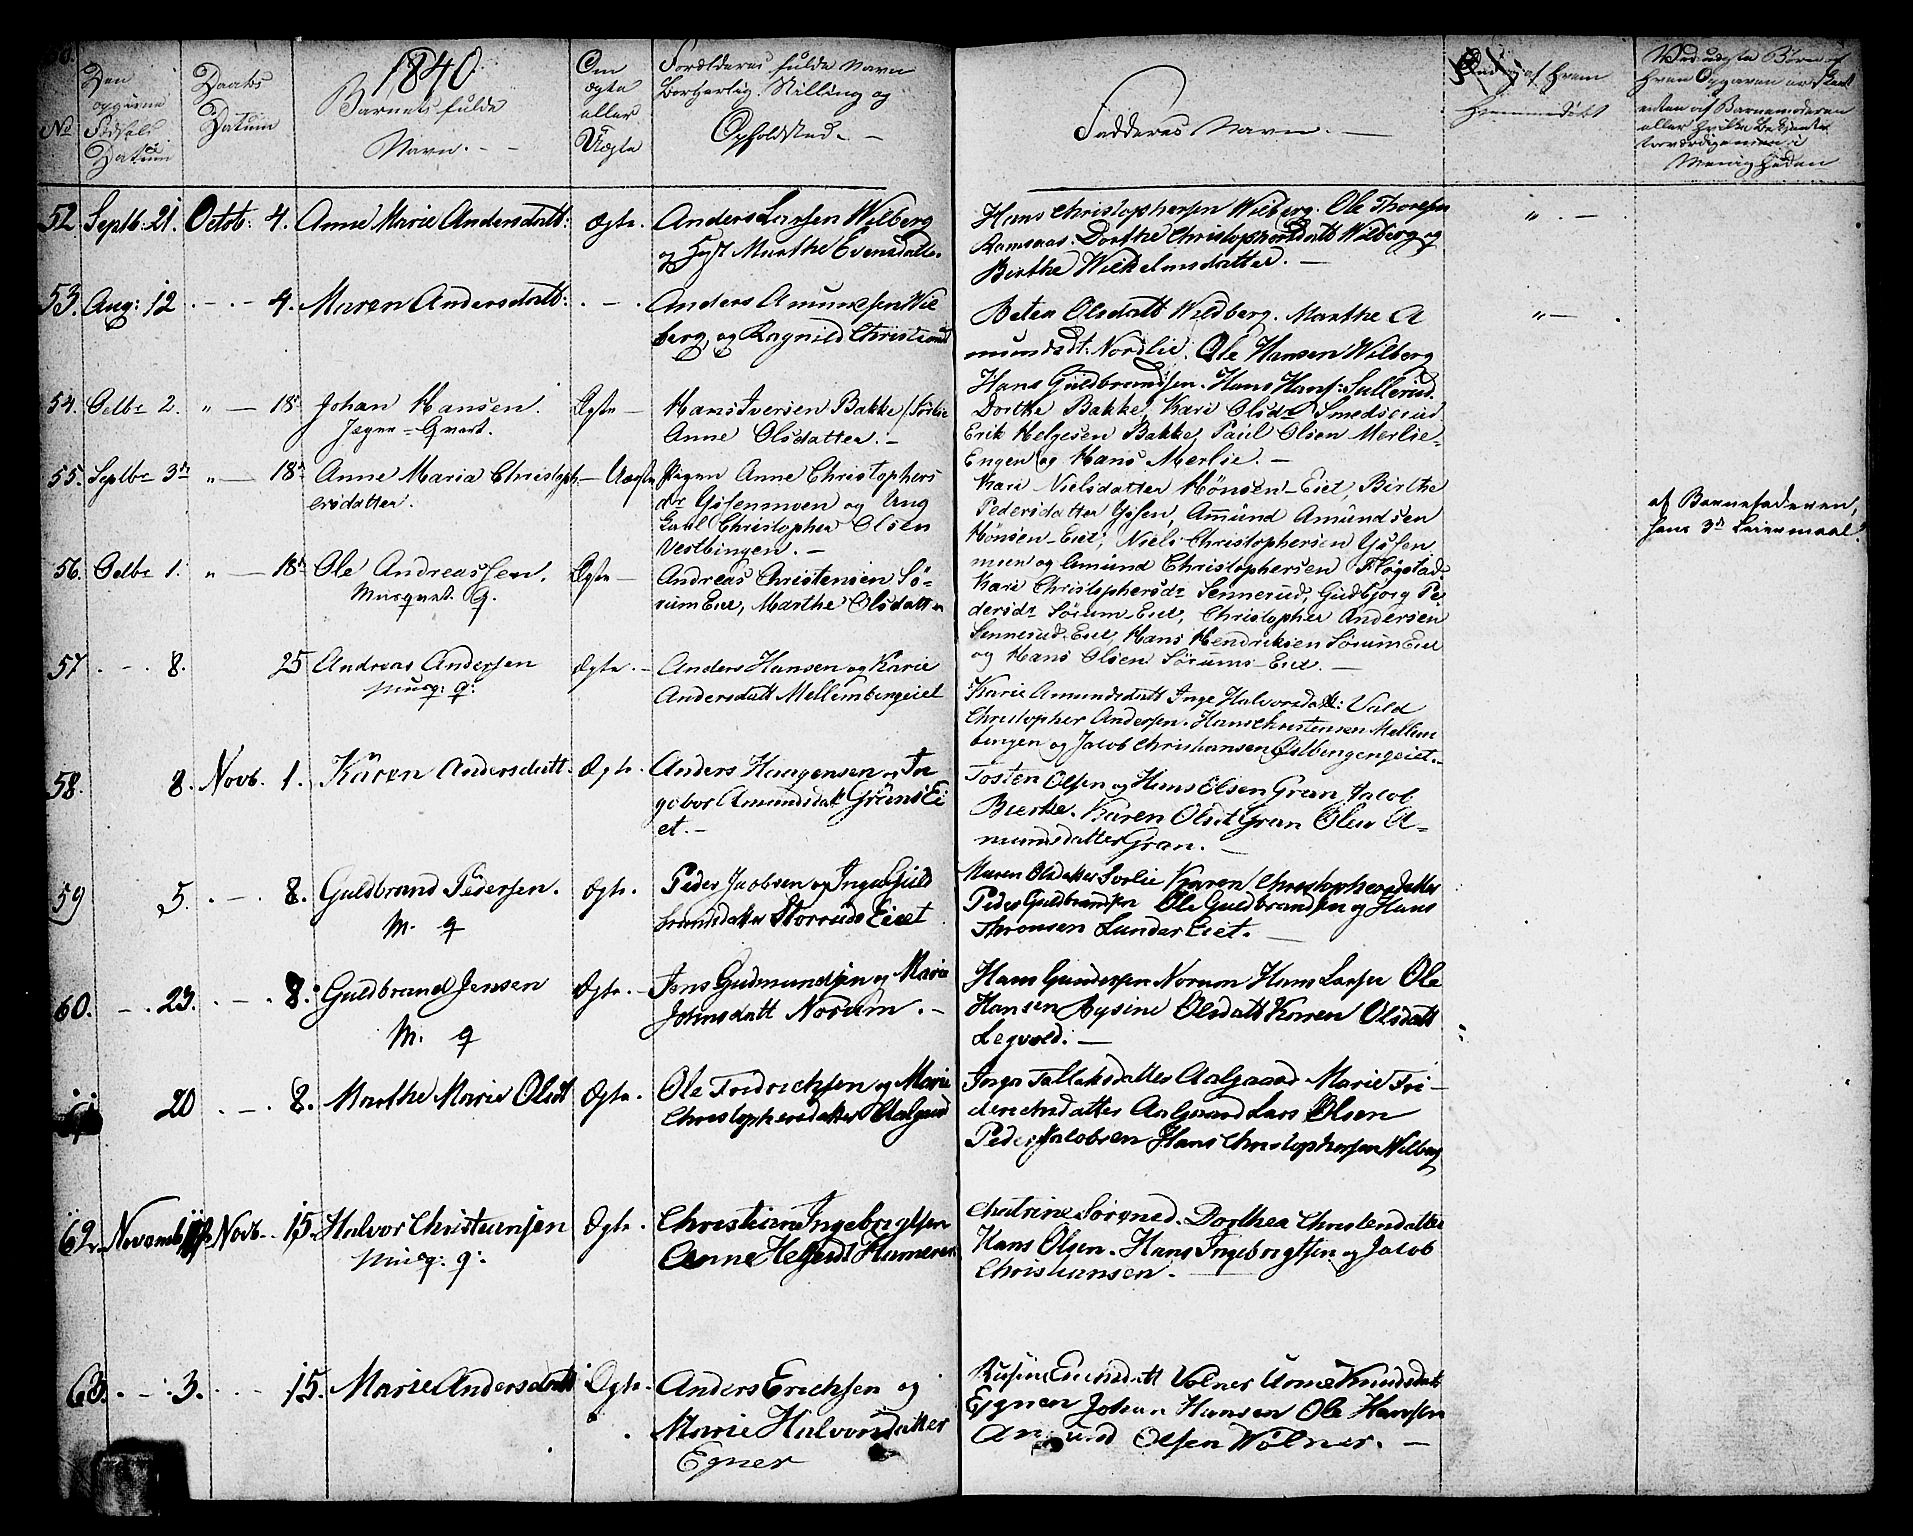 1840
No
Den opgivne Fødsels Datum
Daabs Datum
Barnets fulde Navn. - -
Om ægte eller Uægte
Forældres fulde Navn Borgerlig Stilling og Opholdsted. -
Faddernes Navn. -
af hvem hjemmedøbt
Menigheden
52 Septb: 21. Octob: 4. Anne Marie Andersdatt: Ægte. Anders Larsen Wilberg
og Marthe Evensdatter.
Hans Christophersen Wilberg. Ole Thoresen
Ramsaas. Dorthe Christophersdatt Wilberg og
Birthe Wilhelmsdatter. -
53. Aug: 12 . - . - 4. Maren Andersdatt: . - . Anders Amundsen Wil
berg, og Ragnild Christiansd
Beten Olsdatt Wilberg. Marthe A
mundsdt: Nordlie. Ole Hansen Wilberg
54. Octbr 2. " - 18. Johan Hansen. Ægte - Hans Iversen Bakke /Sørlie
Anne Olsdatter. -
Hans Guldbrandsen. Hans Hans: Sullerud.
Dorthe Bakke, Kari Olsdr Smedsrud
Erik Helgesen Bakke, Paul Olsen Merlie
Engen og Hans Merlie. -
55. Septbr 3 " - 18 Anne Maria Christoph - Uægte Pigen Anne Christophers
ersdatter.
dr Gisenmoen og Ung
Karl Christopher Olsen
Vestbingen. -
Kari Nielsdatter Hønsen-Eiet, Birthe
Pedersdatter Gisen, Amund Amundsen
Hønsen-Eiet, Niels Christophersen Gisen
moen og Amund Christophersen Flogstad.
af Barnefaderen,
hans 3 Leiermaal.
56. Octbr 1. " - 18 Ole Andreassen. Ægte - Andreas Christensen Sø-
Musquet. Q.
rum Eiet, Marthe Olsdatter
Kari Christophersdr Sennerud, Gudbjorg Pe
dersdr Sørum-Eiet, Christopher Andersen
Sennerud-Eiet, Hans Hendriksen Sørum Eiet
og Hans Olsen Sørums-Eiet. -
57 . - . 8. 25 Andreas Andersen Ægte. - Anders Hansen og Karie
Musq: q:
Andersdatt Mellembingeiet
Karie Amundsdatt Inge Halvorsdatt: Vald
Christopher Andersen. Hans Christensen Mellem
bingen og Jacob Christiansen Østbingengeiet. -
58. 8. Novb. 1. Karen Andersdatt. Ægte. Anders Haagensen og In
gebor Amundsdatt Gröens Ei
et. -
Tosten Olsen og Hans Olsen Gran Jacob
Bierke. Karen Olsdt Gran Olea A-
mundsdatter Gran. -
59 5. . - . 8. Guldbrand Pedersen. Ægte. Peder Jacobsen og Inger Guld
M. q
brandsdatter Storruds Eiet
Maren Olsdatter Sorlie Karen Christophersdatter
Peder Guldbrandsen Ole Guldbrandsen og Hans
Thronsen Lunder Eiet. -
60. . - . 23. . - . 8. Guldbrand Jensen Ægte. - Jens Gudmundsen og Marie
M. q
Johnsdatt Norum. -
Hans Gundersen Norum Hans Larsen Ole
Hansen Aysine Olsdatt Karen Olsdatt
Legvold. -
61 20 . - . 8. Marthe Marie Olsdt Ægte. Ole Fridrichsen og Marie
Christophersdatter Aalgaard
Inger Tollaksdatter Aalgaard Marie Fri-
derichsdatter Aalgaard Lars Olsen
Peder Jacobsen Hans Christophersen Wilberg
62. Novemb Novb. 15. Halvor Christiansen Ægte. Christian Ingebrigtsen
Musq: q:
Anne Helgesdt Hameren
Chatrine Sørgned. Dorthea Christensdatter
Hans Olsen. Hans Ingebrigtsen og Jacob
Christiansen. -
63. . - . 3. . - 15. Marie Andersdatt Ægte. Anders Erichsen og
Marie Halvorsdatter
Egner
Evensdatt Volner Anne Knudsdatt
Egnen Johan Hansen Ole Hansen
Amund Olsen Wölner. -